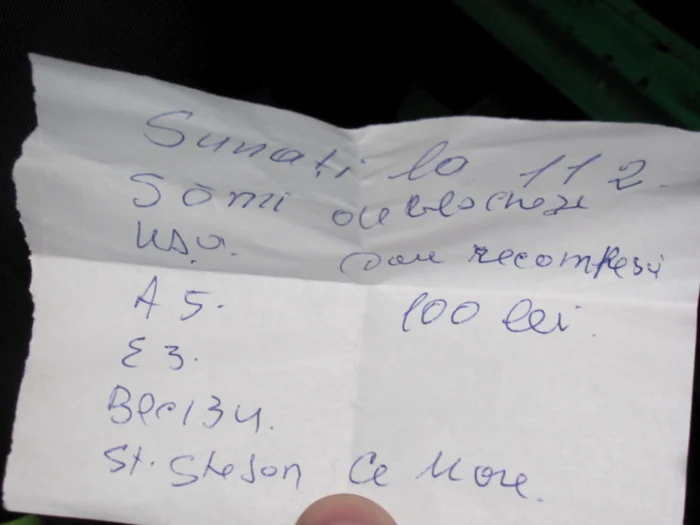 Sunați la 112.
Să mi deblocheze
ușa. Dau recompesă
A 5. 100 lei.
E 3.
Bloc 134.
St. Stefan Ce Mare.